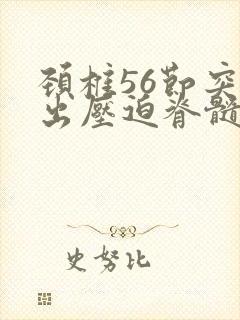 頸椎56節突
出壓迫脊髓
史努比